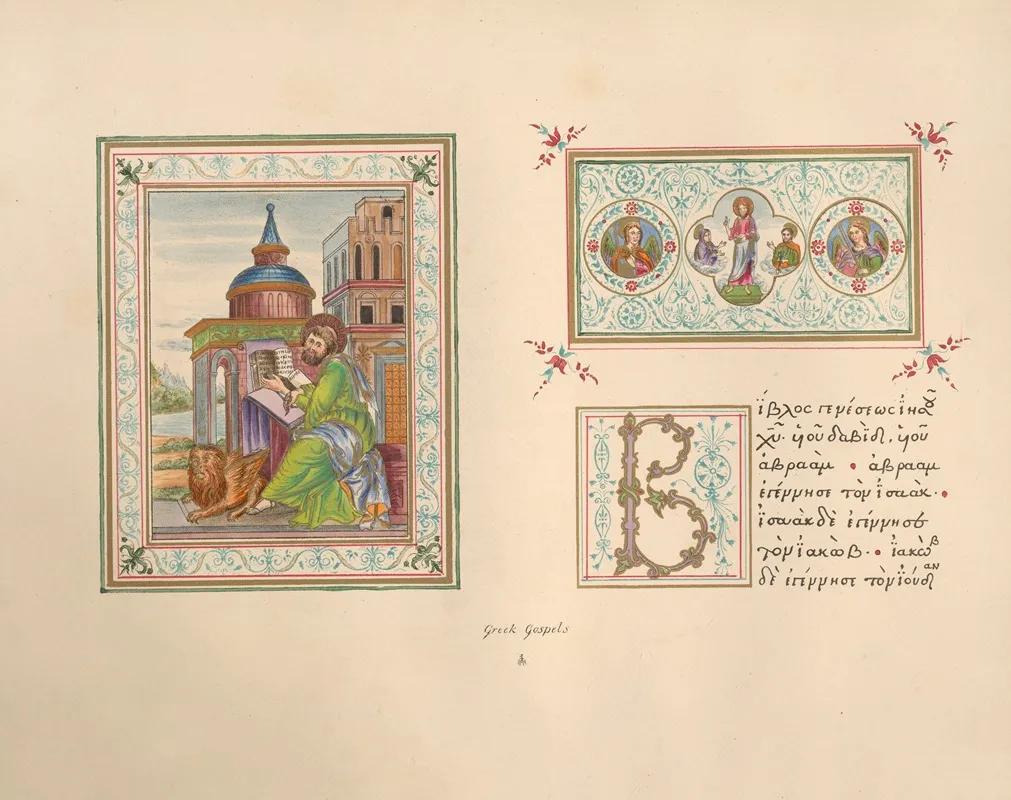 Β
ίβλος γενέσεως ἰ̈υ
χ̅υ̅· ὑιοῦ δαβὶδ, ὑιοῦ
ἀβραάμ • ἀβρααμ
ἐγέννησε τὸν ἰσαὰκ·•
ἰσαὰκ δὲ ἐγέννησε
τὸν ἰακὼβ·• ἰακὼβ
δὲ ἐγέννησε τὸν ἰούδαν
Greek Gospels